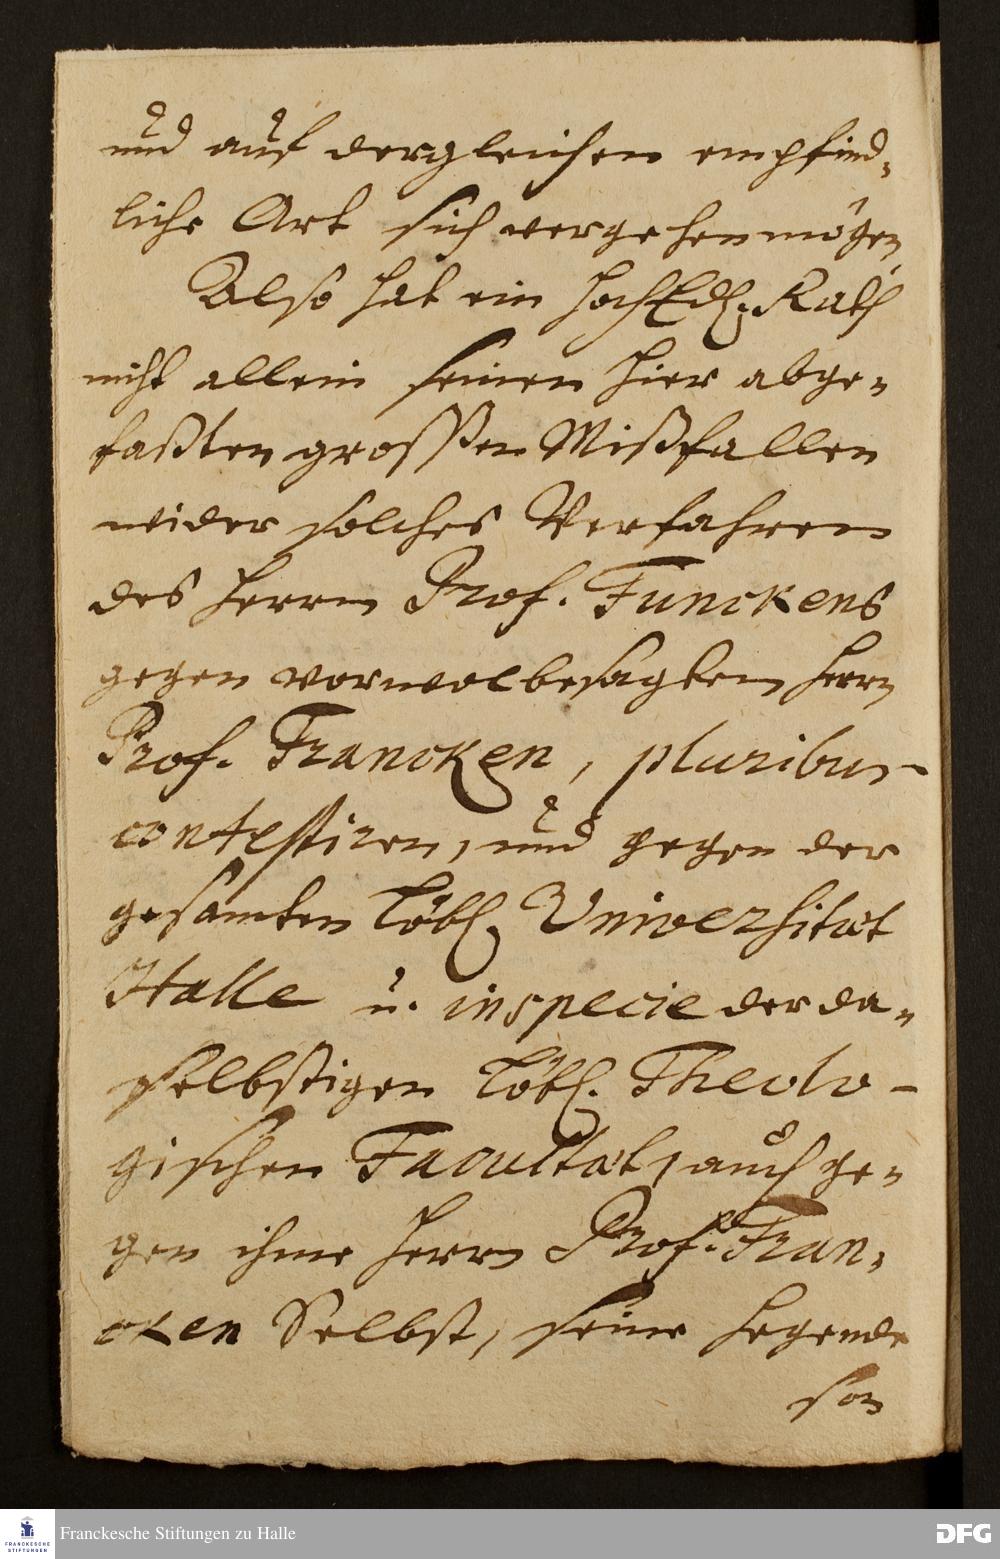 und auf dergleichen empfind-
liche Art sich vergehen mögen,
Also hat ein HochEdl. Rath
nicht allein seinen hier abge-
faßten grossen Mißfallen
wider solches Verfahren
des Herrn Prof. Funckens
gegen vorwolbesagtem Herrn
Prof. Francken, pluribus
contestiren, und gegen der
gesamten Löbl. Universitæt
Halle u. in specie der da-
selbstigen Löbl. Theolo-
gischen Facultæt, auch ge-
gen ihme Herrn Prof. Fran-
cken Selbst, seine hegende
son
Franckesche Stiftungen zu Halle
FRANCKESCHE
STIFTUNGEN
DFG